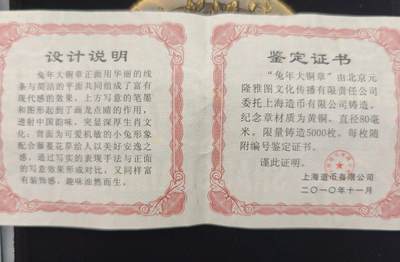 设计说明
兔年大铜章正面用华丽的线
条与简洁的平面共同组成了富有
现代感的效果，上方写意的笔墨
和图形起到了画龙点睛的作用，
透射中国韵味，突显深厚生肖文
化。背面为可爱机敏的小兔形象
配合藤蔓花草给人以美好安逸之
感，通过写实的表现手法与正面
的写意效果形成对比，又同样富
有装饰感，趣味油然而生。
鉴定证书
“兔年大铜章”由北京元
隆雅图文化传播有限责任公司
委托上海造币有限公司铸造。
纪念章材质为黄铜，直径80毫
米，限量铸造5000枚，每枚随
附编号鉴定证书。
谨此证明。
上海造币有限公司
二〇一〇年十一月